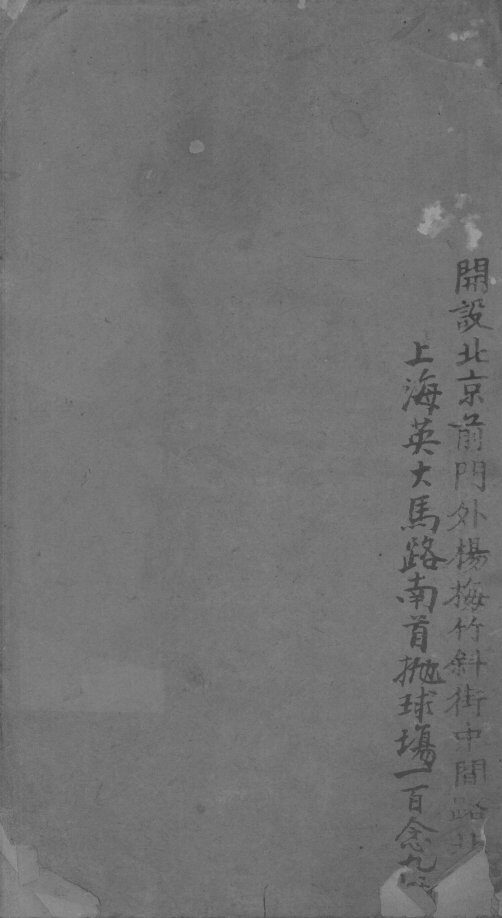 開設北京前門外楊梅竹斜街中間路北
上海英大馬路南首拋球塲一百念九